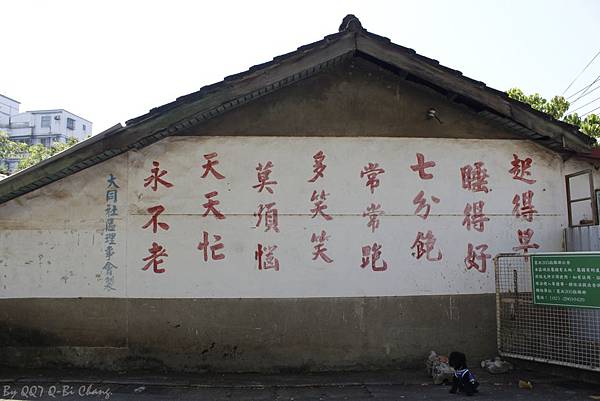 起得早
睡得好
七分飽
常常跑
多笑笑
莫煩惱
天天忙
永不老
大同社區理事會製
By QQ7 Q-Bi Chang.